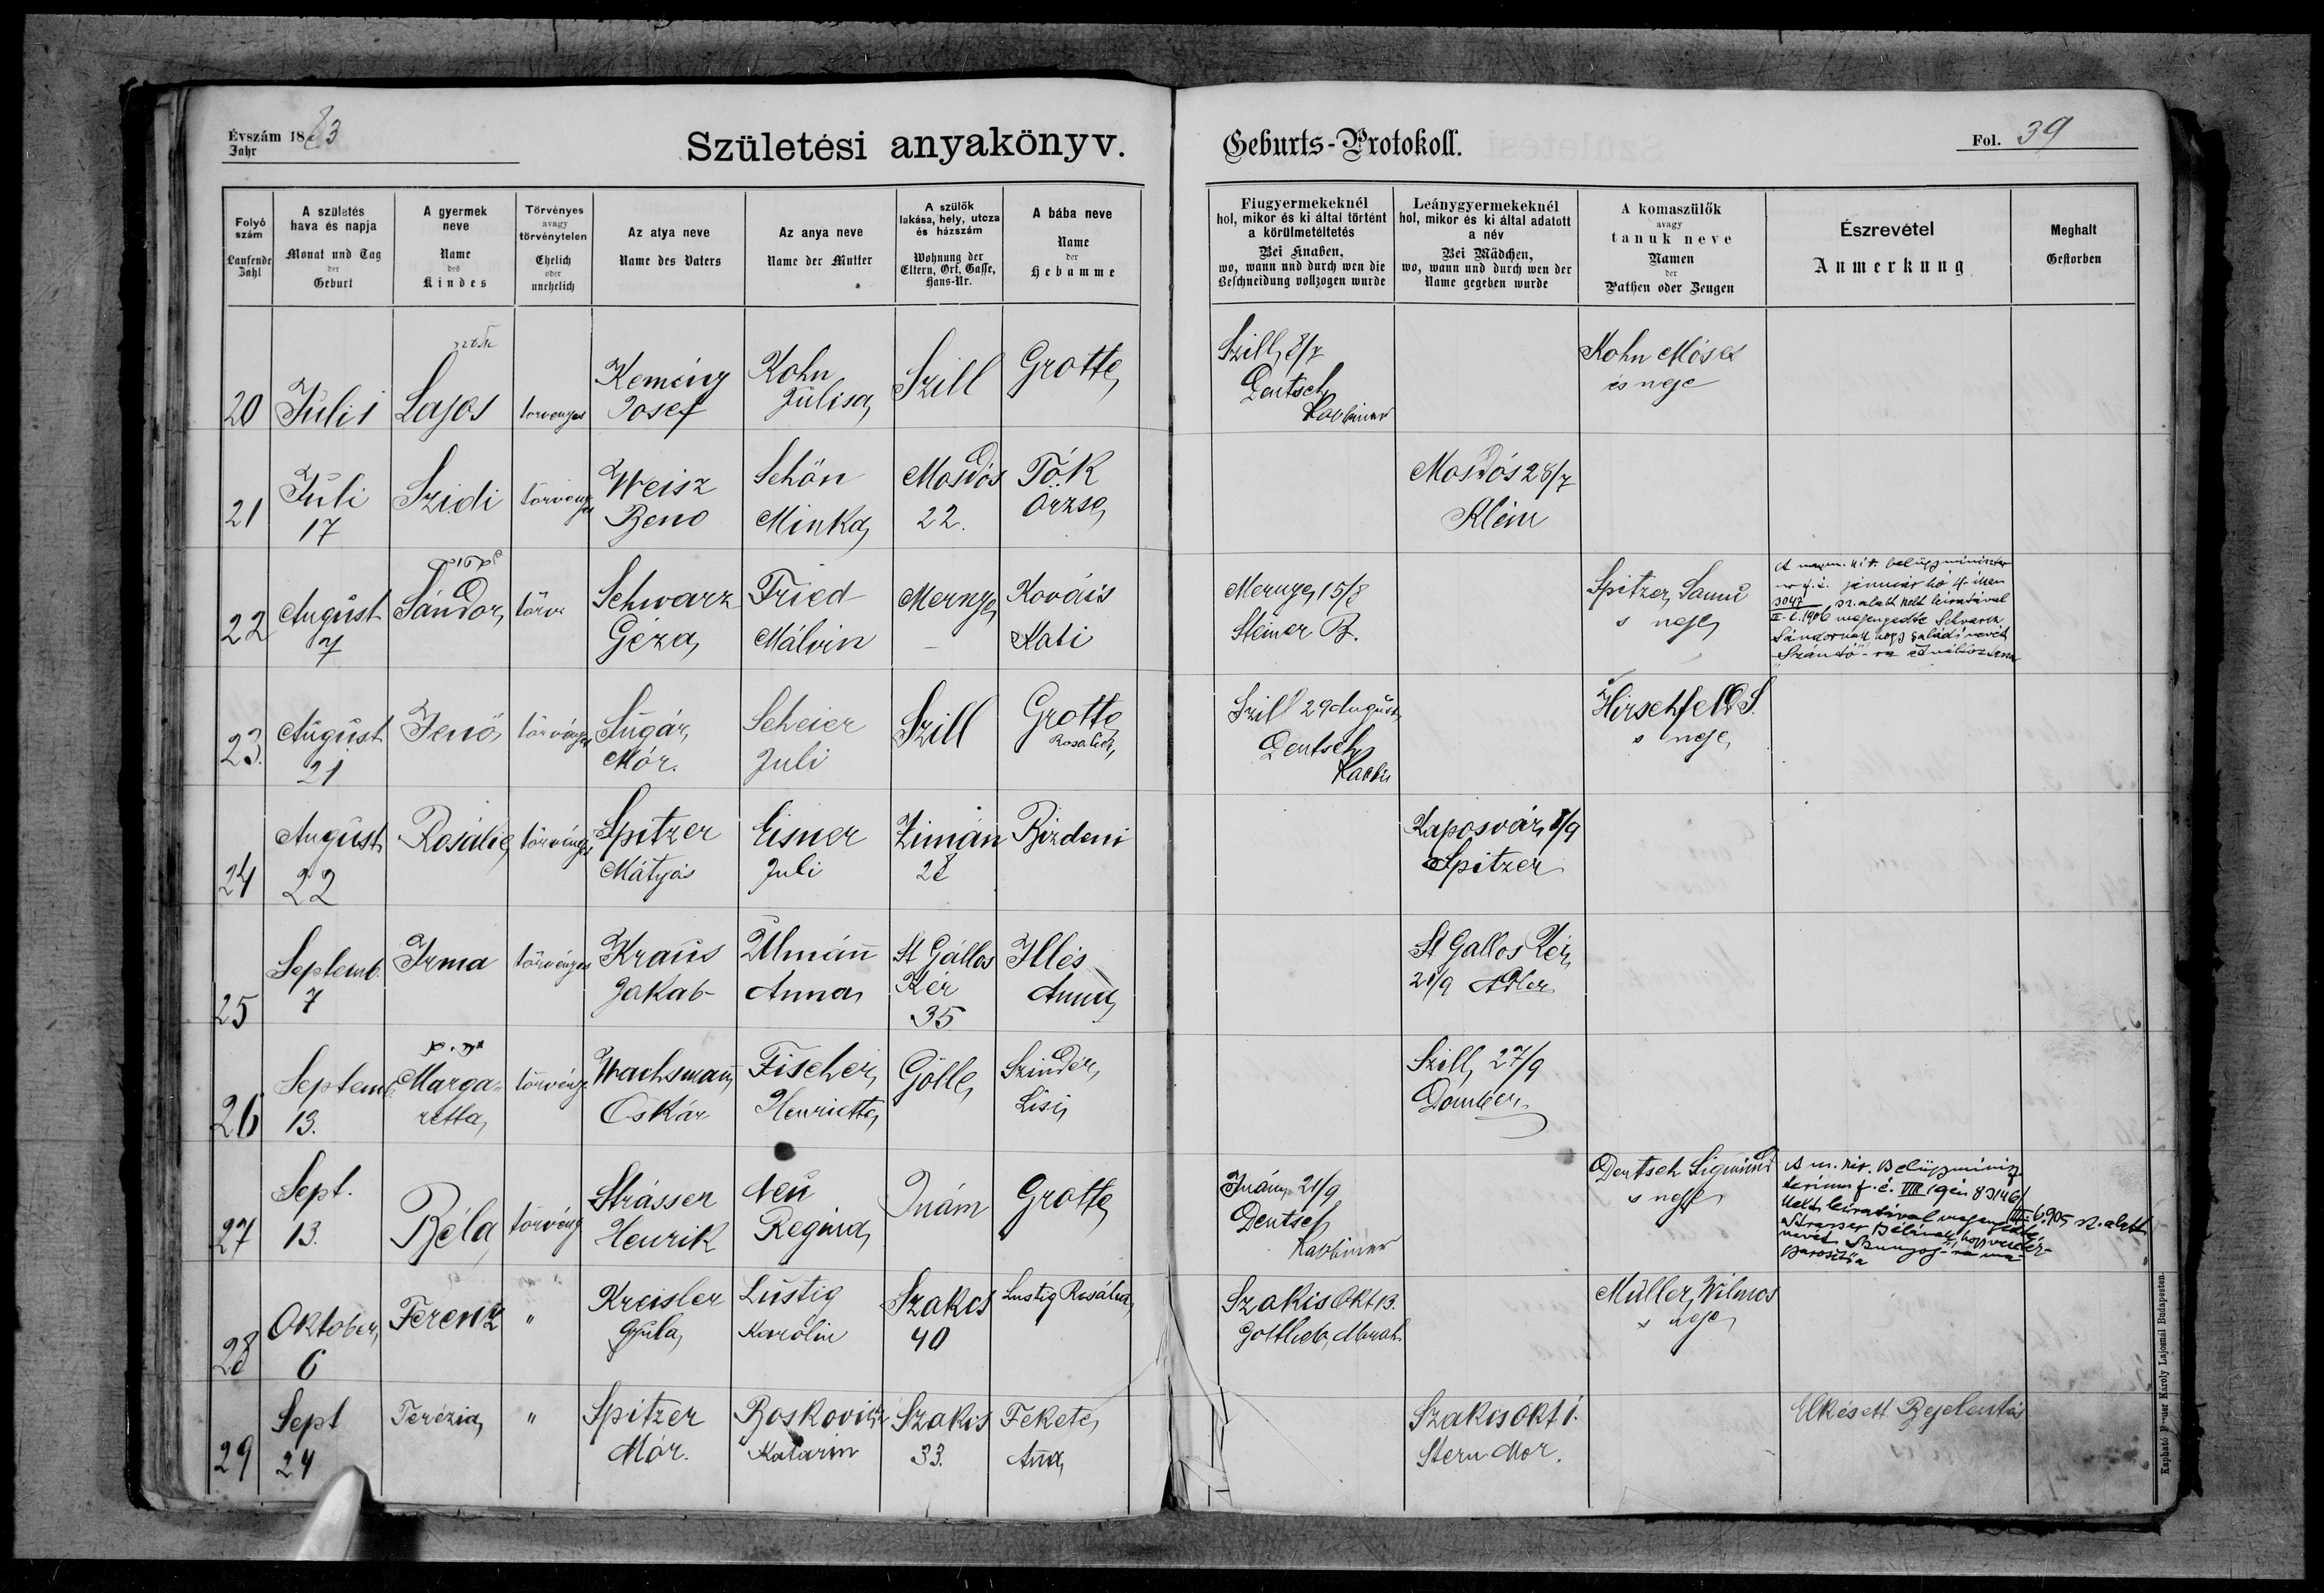 Évszám 1883
Jahr
Születési anyakönyv.
Geburts-Protokoll.
Fol. 39
Folyó szám
Laufende Zahl
A születés hava és napja
Monat und Tag der Geburt
A gyermek neve
Name des Kindes
Törvényes avagy törvénytelen
Ehelich oder unehelich
Az atya neve
Name des Vaters
Az anya neve
Name der Mutter
A szülők lakása, hely, utcza és házszám
Wohnung der Eltern, Ort, Gasse, Haus-Nr.
A bába neve
Name der Hebamme
Fiugyermekeknél hol, mikor és ki által történt a körülmetéltetés
Bei Knaben, wo, wann und durch wen die Beschneidung vollzogen wurde
Leánygyermekeknél hol, mikor és ki által adatott a név
Bei Mädchen, wo, wann und durch wen der Name gegeben wurde
A komaszülők avagy tanuk neve
Namen der Pathen oder Zeugen
Észrevétel
Anmerkung
Meghalt
Gestorben
20 Juli 1 Lajos törvenyes Kemény Josef Kohn Julisa Szill Grotte Szill 8/7 Deutsch Rabbiner Kohn Móses és neje
21 Juli 17 Szidi törvenyes Weisz Beno Schön Minka Mosdós 22. Tók Örzse Mosdós 28/7 Klein
22 August 7 Sándor törv Schwarz Géza Fried Málvin Mernye Kovács Kati Mernye 15/8 Steiner B. Spitzer Samu s neje
belügyminister
f. é. január hó 4.-iken
3047 sz. alatt kelt leiratával
II-C. 1906 megengedte Schvarcz
Sándornak hogy családi nevét
"Szántó"-ra
23. August 21 Jenö törvényes Sugár Mór. Scheier Juli Szill Grotte Rosalia Szill 29 August Deutsch Rabbi Hirschfeld S. s neje
24 August 22 Rosalie törvényes Spitzer Mátyás Eisner Juli Zimán 28 Bizdeni Kaposvár 8/9 Spitzer
25 Septemb. 7 Irma törvényes Kraus Jakab Ulmann Anna St Gállos Kér 35 Illés Anna St Gallos Kér 21/9 Adler
26 Septemb. 13. Margaretta törvény Wachsmann Oskár Fischer Henrietta Gölle Szinder Lisi Szill 27/9
27 Sept. 13. Béla törvény Strásser Henrik Neu Regina Inám Grotte Inám 21/9 Deutsch Rabbiner Deutsch Sigmund s neje
A m. kir. Belügyminisz
terium f. é. VIII 19én 83146/
III-b.905 sz. alatt
kelt leiratával megengedte
Strasser Bélának, hogy vezeték-
nevét
28 Oktober 6 Ferenz " Kreisler Gyula Lustig Karolin Szakcs 40 Lustig Rosália Szakcs Okt 13. Gottlieb Abrah. Müller Vilmos s neje
29 Sept 24 Terézia " Spitzer Mór. Boskovitz Katarin Szakcs 33. Fekete Anna Szakcs Okt 1. Stern Mor. Elkésett Bejelentés
Kapható Károly Lajosnál Budapesten.